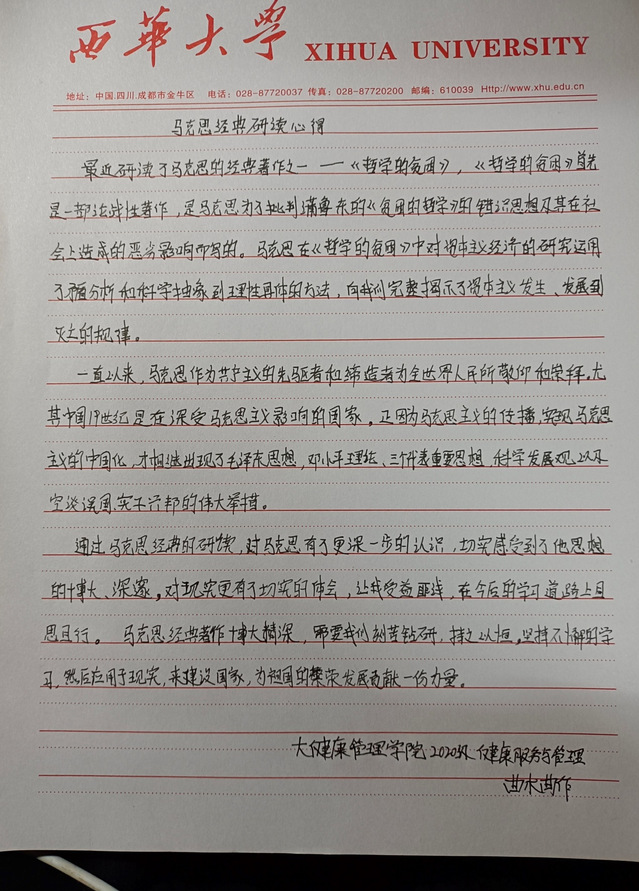 西華大学 XIHUA UNIVERSITY
地址：中国.四川.成都市金牛区 电话：028-87720037 传真：028-87720200 邮编：610039 Http://www.xhu.edu.cn
马克思经典研读心得
最近研读了马克思的经典著作之一——《哲学的贫困》，《哲学的贫困》首先
是一部论战性著作，是马克思为了批判蒲鲁东的《贫困的哲学》的错误思想及其在社
会上造成的恶劣影响而写的。马克思在《哲学的贫困》中对资本主义经济的研究运用
了矛盾分析和科学抽象到理性具体的方法，向我们完整揭示了资本主义发生、发展到
灭亡的规律。
一直以来，马克思作为共产主义的先驱者和缔造者为全世界人民所敬仰和崇拜。尤
其中国19世纪是在深受马克思主义影响的国家。正因为马克思主义的传播，实现马克思
主义的中国化，才相继出现了毛泽东思想，邓小平理论、三个代表重要思想，科学发展观，以及
空谈误国，实干兴邦的伟大举措。
通过马克思经典的研读，对马克思有了更深一步的认识，切实感受到了他思想
的博大、深邃。对现实更有了切实的体会，让我受益匪浅，在今后的学习道路上且
思且行。马克思经典著作博大精深，需要我们刻苦钻研，持之以恒，坚持不懈的学
习，然后应用于现实，来建设国家，为祖国的繁荣发展贡献一份力量。
大健康管理学院2020级健康服务与管理
曲木曲作